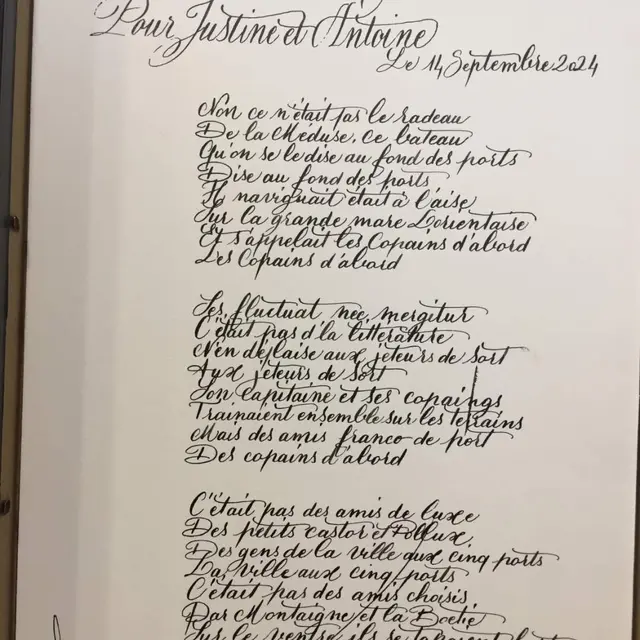 Pour Justine et Antoine
Le 14 Septembre 2024
Non ce n'était pas le radeau
De la Méduse, ce bateau
Qu'on se le dise au fond des ports
Dise au fond des ports
Il naviguait était à l'aise
Sur la grande mare Lorientaise
Et s'appelait les Copains d'abord
Les Copains d'abord
Ses fluctuat nec mergitur
C'était pas d'la littérature
N'en déplaise aux jeteurs de sort
Aux jeteurs de sort
Son capitaine et ses copaings
Trainaient ensemble sur les terrains
Mais des amis franco de port
Des copains d'abord
C'était pas des amis de luxe
Des petits castor et Pollux,
Des gens de la ville aux cinq ports
La ville aux cinq ports
C'était pas des amis choisis
Par Montaigne et la Boetie
Sur le ventre ils se tapaient